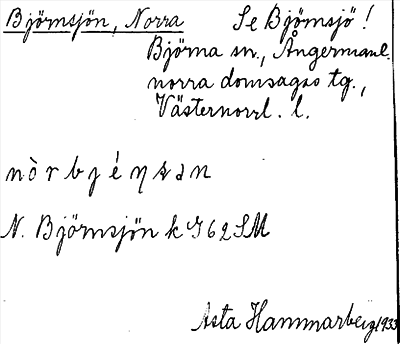 Björnsjön, Norra Se Björnsjö!
Björna sn., Ångermanl.
norra domsagas tg.,
Västernorrl. l.
nòrbjén
N. Björnsjön k G62SM
Asta Hammarberg 1933